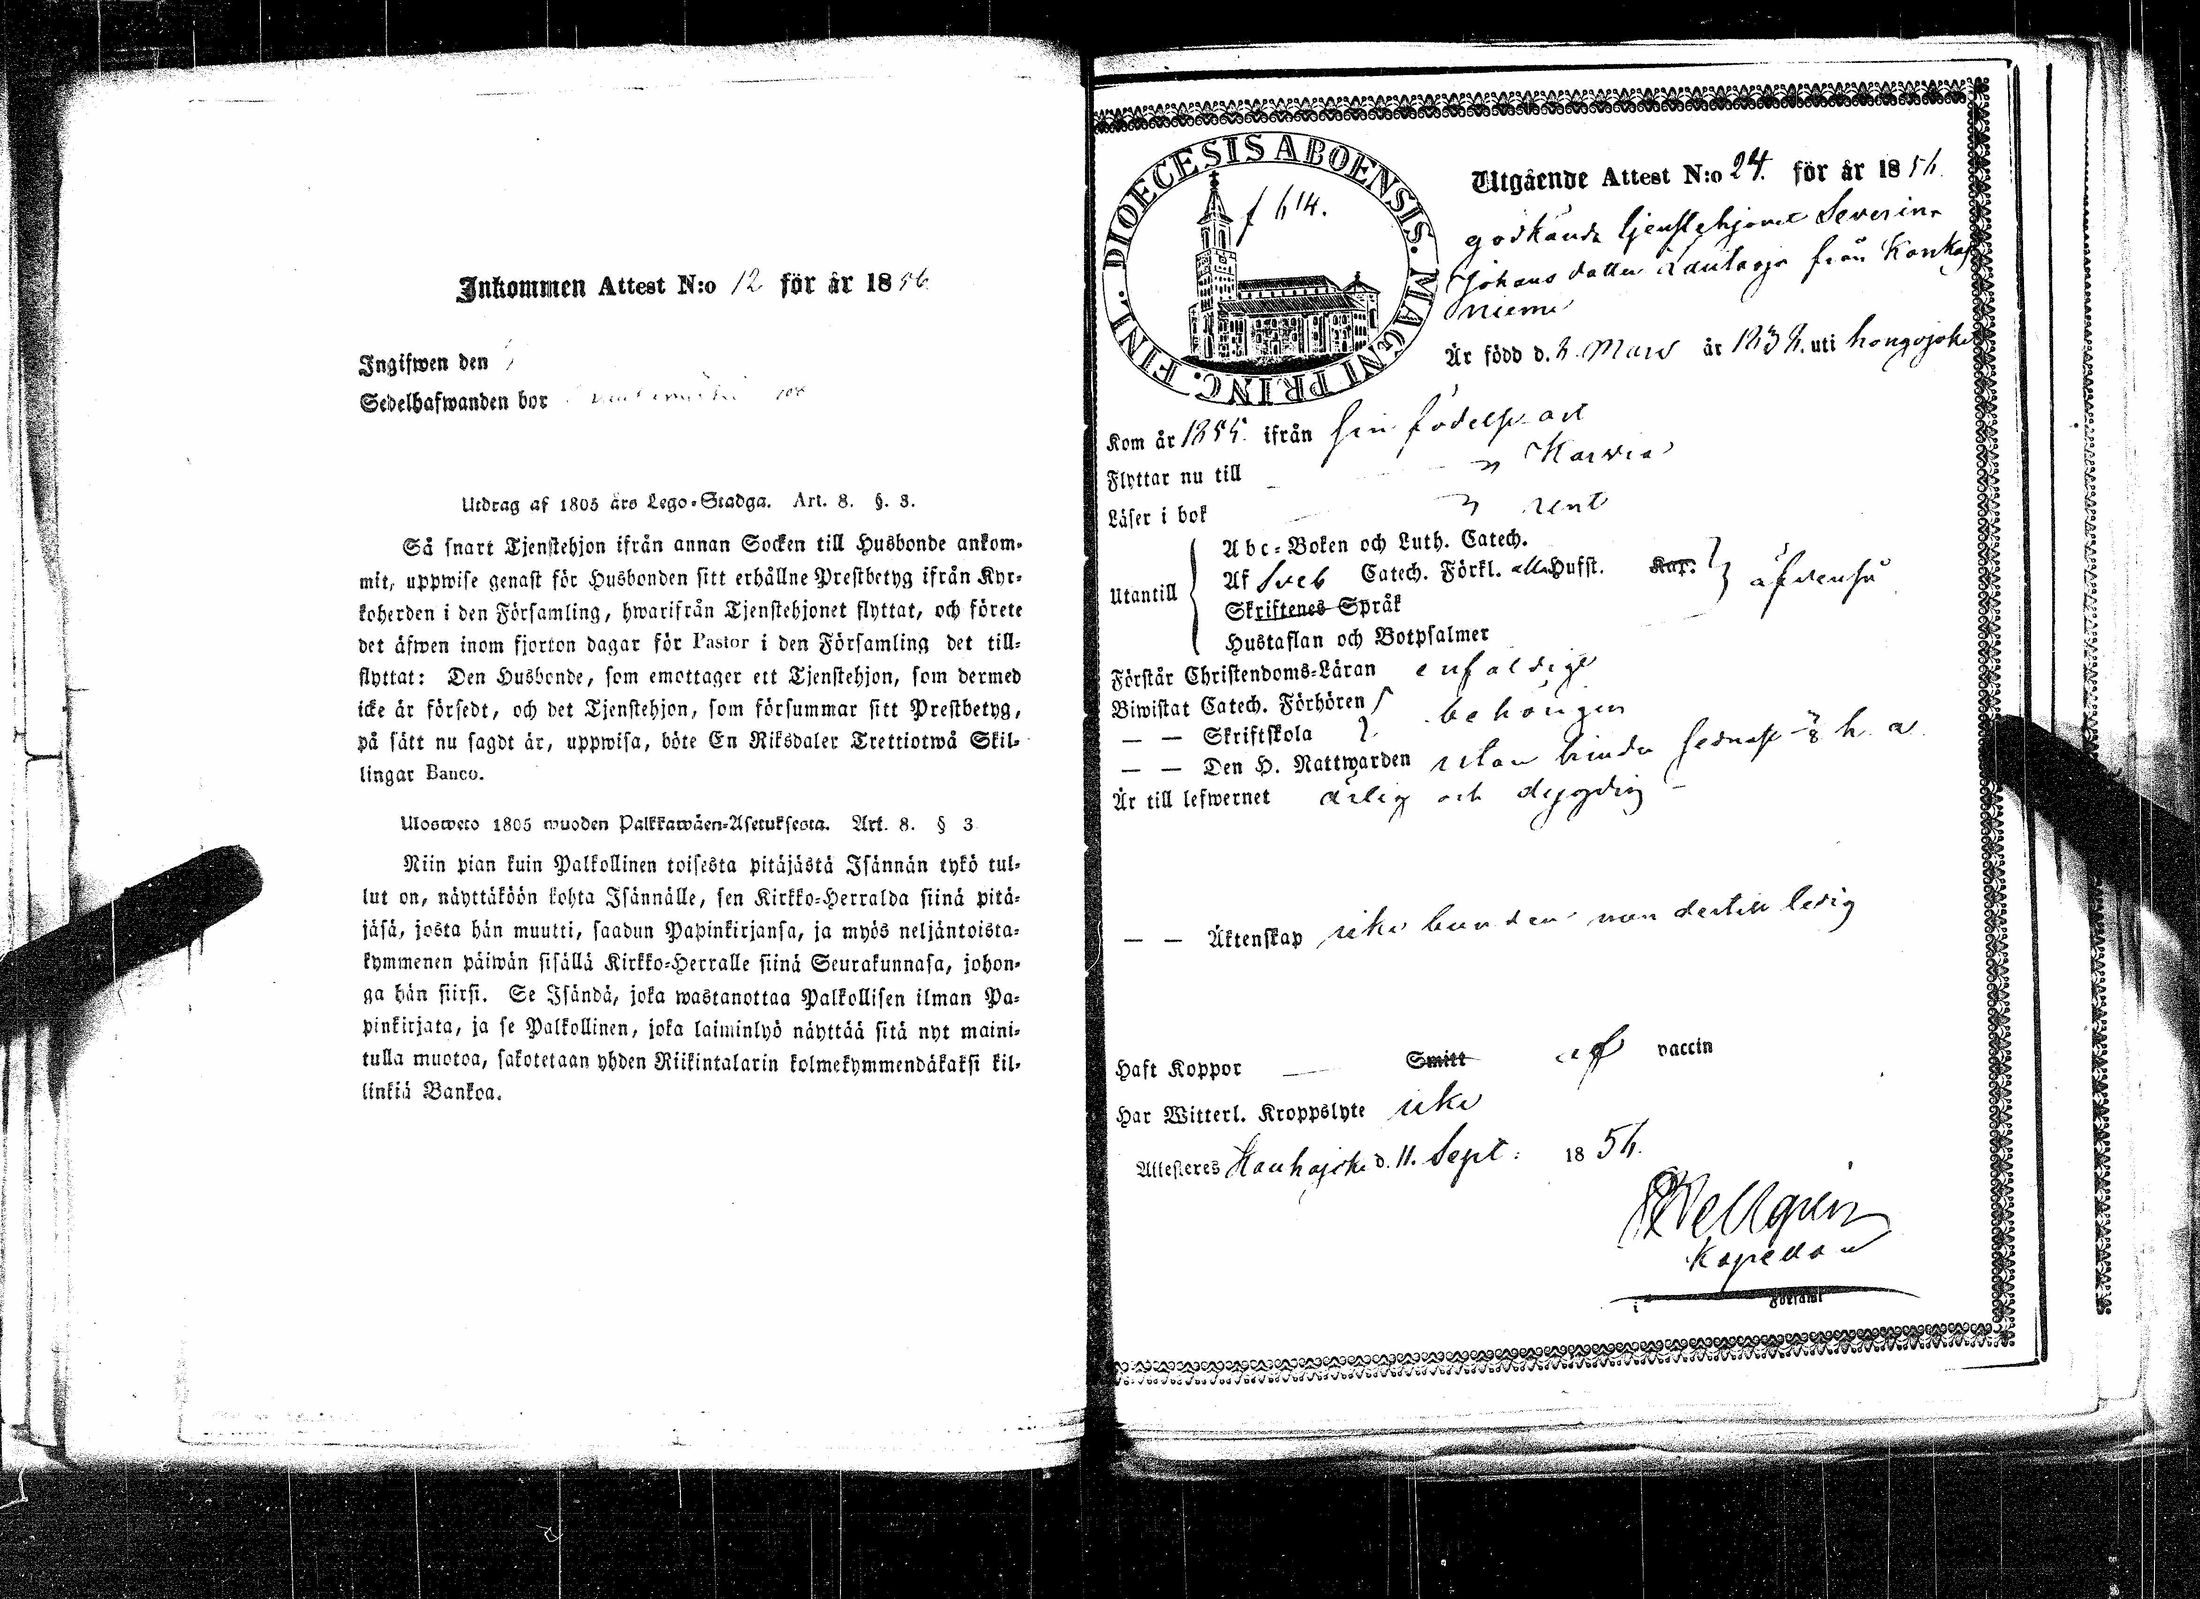 Inkommen Attest N:o 12 för år 1856
Ingifwen den
Sedelhafwanden bor
Utdrag af 1805 års Lego-Stadga. Art. 8. §. 3.
Så snart Tjenstehjon ifrån annan Socken till Husbonde ankom-
mit, uppwise genast för Husbonden sitt erhållne Prestbetyg ifrån Kyr-
koherden i den Församling, hwarifrån Tjenstehjonet flyttat, och förete
det äfwen inom fjorton dagar för Pastor i den Församling det till-
flyttat: Den Husbonde, som emottager ett Tjenstehjon, som dermed
icke är försedt, och det Tjenstehjon, som försummar sitt Prestbetyg,
på sätt nu sagdt är, uppwisa, böte En Riksdaler Trettiotwå Skil-
lingar Banco.
Ulosweto 1805 wuoden Palkkawäen-Asetuksesta. Art. 8. § 3
Niin pian kuin Palkollinen toisesta pitäjästä Isännän tykö tul-
lut on, näyttäköön kohta Isännälle, sen Kirkko-Herralda siinä pitä-
jäsä, josta hän muutti, saadun Papinkirjansa, ja myös neljäntoista-
kymmenen päiwän sisällä Kirkko-Herralle siinä Seurakunnasa, johon-
ga hän siirsi. Se Isändä, joka wastanottaa Palkollisen ilman Pa-
pinkirjata, ja se Palkollinen, joka laiminlyö näyttää sitä nyt maini-
tulla muotoa, sakotetaan yhden Riikintalarin kolmekymmendäkaksi kil-
linkiä Bankoa.
DIOECESIS ABOENSIS. MAGNI PRINC. FINL.
f 614.
Utgående Attest N:o 24. för år 1856.
godkända tjenstehjonet Severina
Johans dotter från Konka
niemi
Är född d. 2. Mars år 1832. uti hongojoki
Kom år 1855. ifrån sin födelse ort
Flyttar nu till Karvia
Läser i bok rent
Abc-Boken och Luth. Catech.
Utantill Af Sveb Catech. Förkl. alla Hufst. Kap. äfvenså
Skriftenes Språk
Hustaflan och Botpsalmer
Förstår Christendoms-Läran enfaldige
Biwistat Catech. Förhören
behörigen
— — Skriftskola
— — Den H. Nattwarden utan hinder sednast h. a.
Är till lefwernet ärlig och dygdig
— — Äktenskap icke bunden utan dertill ledig
Haft Koppor — Smitt af vaccin
Har Witterl. Kroppslyte icke
Attesteres Honhajoki d. 11. Sept: 1856.
Kapellan
i Församl